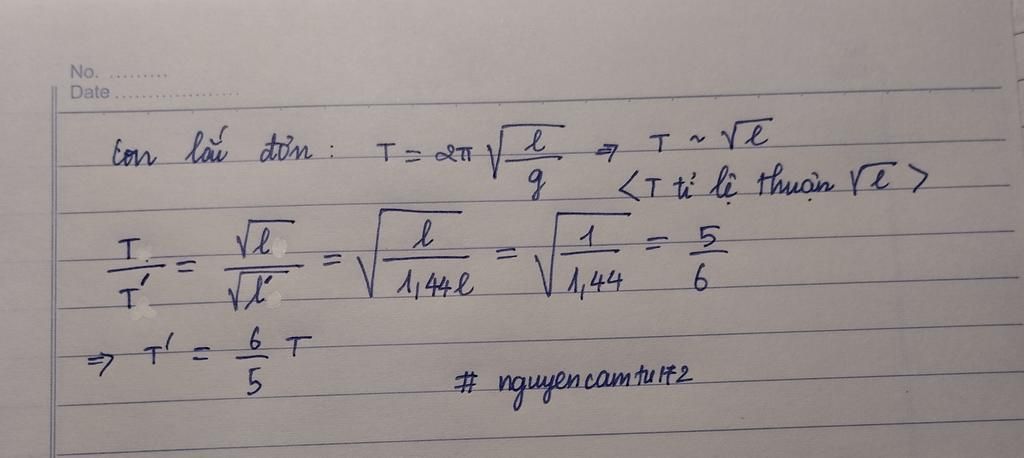 No. .........
Date ...................
Con lắc đơn : T = 2π √(l/g) ⇒ T ~ √l
< T tỉ lệ thuận √l >
T/T' = √l/√l' = √(l/1,44l) = √(1/1,44) = 5/6
⇒ T' = 6/5 T
# nguyencamtu172